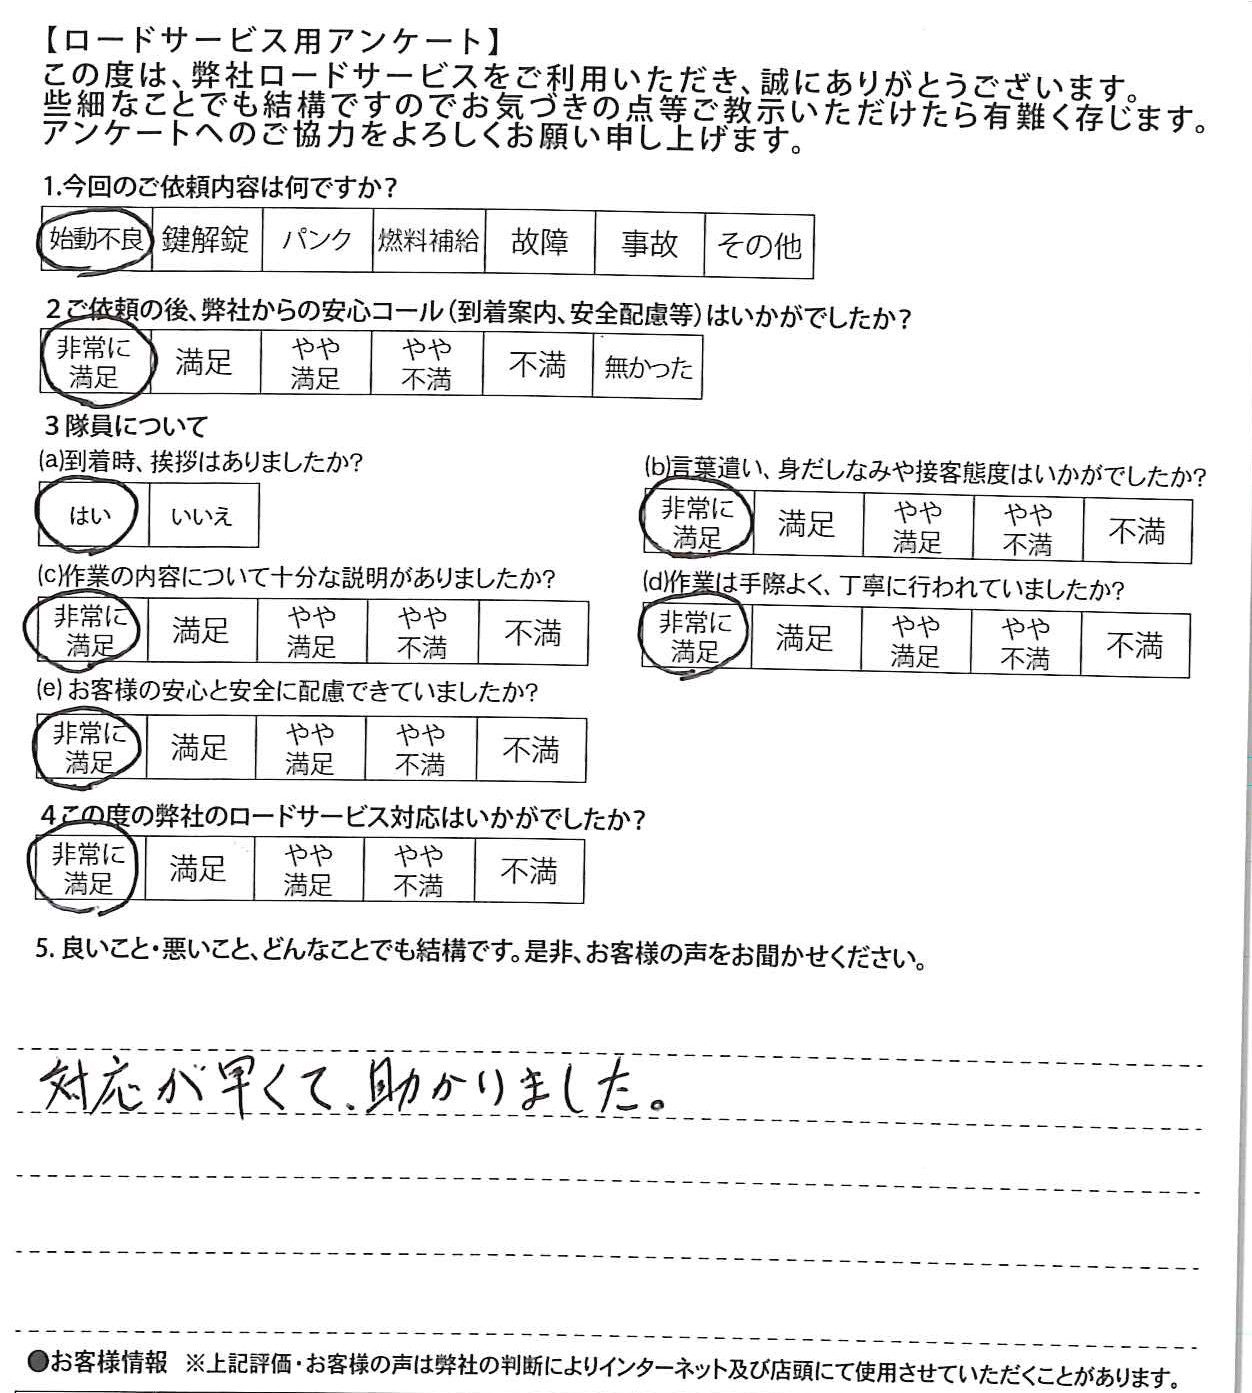 【ロードサービス用アンケート】
この度は、弊社ロードサービスをご利用いただき、誠にありがとうございます。
些細なことでも結構ですのでお気づきの点等ご教示いただけたら有難く存じます。
アンケートへのご協力をよろしくお願い申し上げます。
1.今回のご依頼内容は何ですか?
始動不良 鍵解錠 パンク 燃料補給 故障 事故 その他
2ご依頼の後、弊社からの安心コール(到着案内、安全配慮等)はいかがでしたか?
非常に満足 満足 やや満足 やや不満 不満 無かった
3隊員について
(a)到着時、挨拶はありましたか?
はい いいえ
(b)言葉遣い、身だしなみや接客態度はいかがでしたか?
非常に満足 満足 やや満足 やや不満 不満
(c)作業の内容について十分な説明がありましたか?
非常に満足 満足 やや満足 やや不満 不満
(d)作業は手際よく、丁寧に行われていましたか?
非常に満足 満足 やや満足 やや不満 不満
(e)お客様の安心と安全に配慮できていましたか?
非常に満足 満足 やや満足 やや不満 不満
4この度の弊社のロードサービス対応はいかがでしたか?
非常に満足 満足 やや満足 やや不満 不満
5. 良いこと・悪いこと、どんなことでも結構です。是非、お客様の声をお聞かせください。
対応が早くて、助かりました。
●お客様情報 ※上記評価・お客様の声は弊社の判断によりインターネット及び店頭にて使用させていただくことがあります。